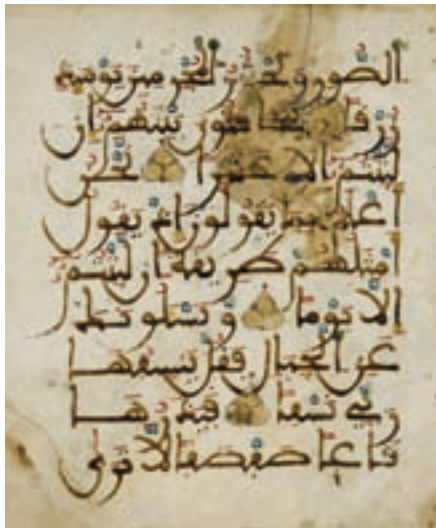 الصور ونحشر المجرمين يومئذ
زرقا يتخفتون بينهم ان
لبثتم الا عشرا نحن
اعلم بما يقولون اذ يقول
امثلهم طريقة ان لبثتم
الا يوما ويسلونك
عن الجبال فقل ينسفها
ربي نسفا فيذرها
قاعا صفصفا لا ترى